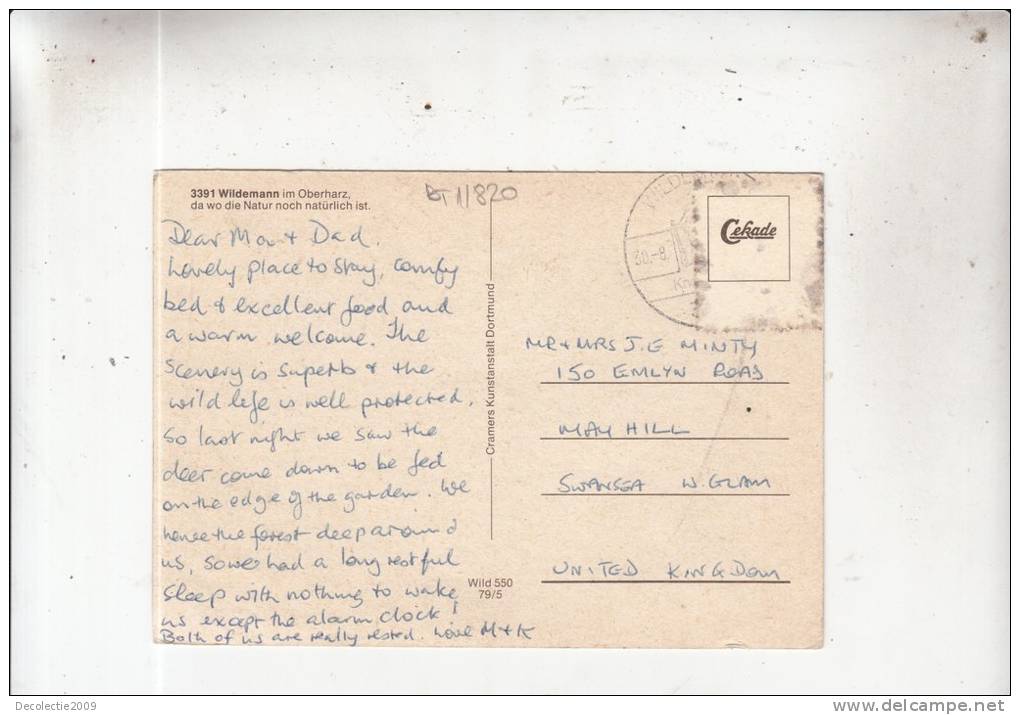 3391 Wildemann im Oberharz,
da wo die Natur noch natürlich ist.
BT 11/820
WILDEMANN
30.-8.
Cekade
Dear Mom + Dad.
Lovely place to stay, comfy
bed & excellent food and
a warm welcome. The
scenery is superb & the
wild life is well protected.
So last night we saw the
deer come down to be fed
on the edge of the garden. We
have the forest deep around
us, so we had a long restful
sleep with nothing to wake
us except the alarm clock!
Both of us are really rested. Love M+K
Cramers Kunstanstalt Dortmund
Wild 550
79/5
MR + MRS J.E MINTY
150 EMLYN ROAD
MAY HILL
SWANSEA W. GLAM
UNITED KINGDOM
Decolectie2009
www.delcampe.net